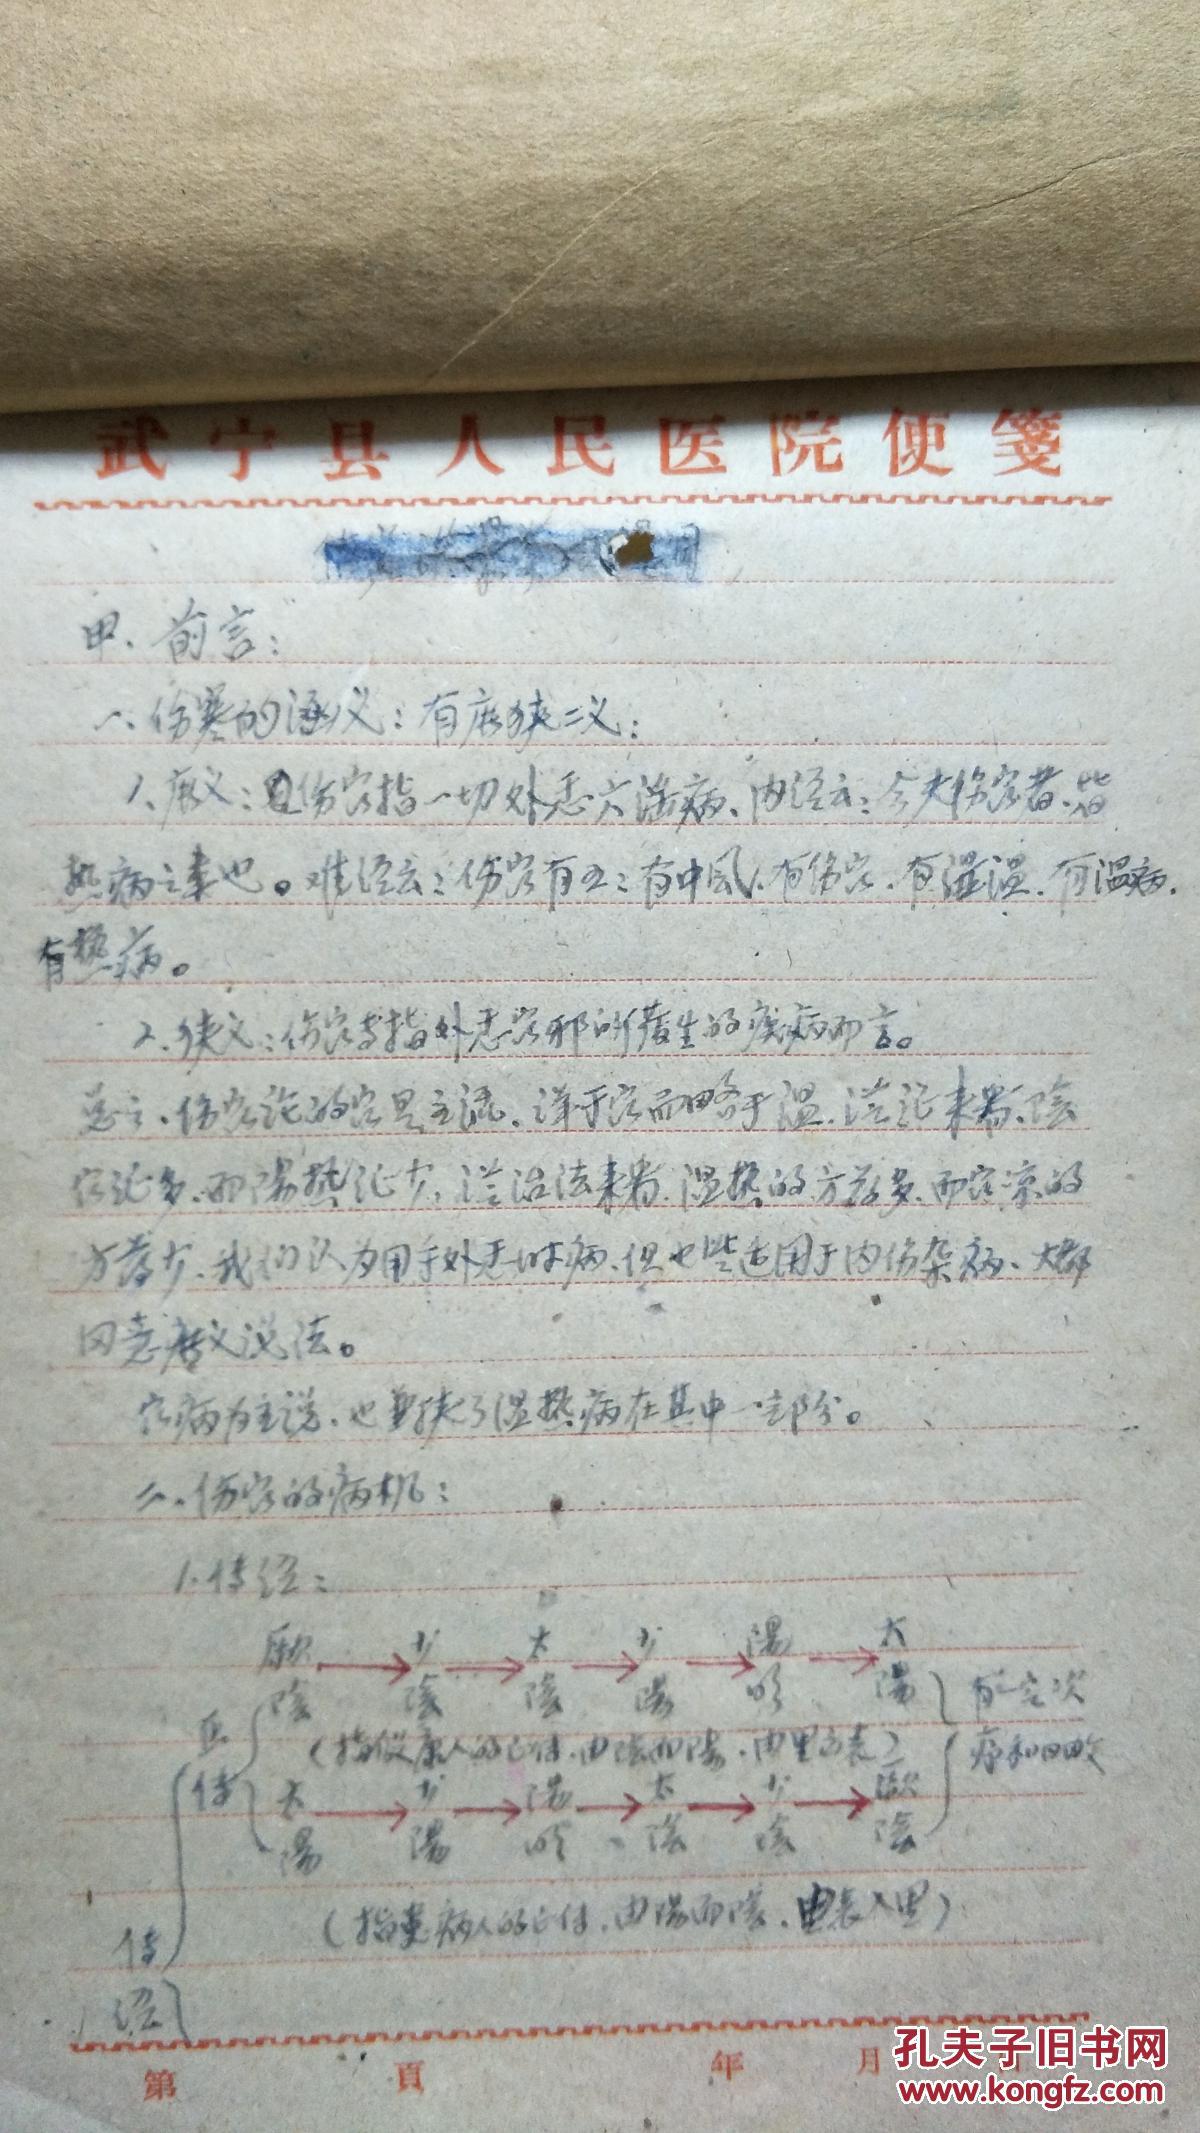 武宁县人民医院便笺
甲、前言：
一、伤寒的涵义：有広狭二义：
1、広义：伤寒指一切外感六淫病、内经云：今夫伤寒者、皆
热病之类也。难经云：伤寒有五：有中风、有伤寒、有湿温、有温病、
有热病。
2、狭义：伤寒专指外感寒邪所发生的疾病而言。
总之、伤寒论的寒是主流、详于寒而略于温、从论来看、陰
寒证多、而陽热证少、从治法来看、温热的方药多、而寒凉的
方药少、我们认为用于外感时病、但也些适用于内伤杂病、大都
同意広义说法。
寒病为主说、也兼挟了温热病在其中一部分。
二、伤寒的病机：
1、传经：
厥陰 → 少陰 → 太陰 → 少陽 → 陽明 → 太陽
(指健康人的正传、由陰而陽、由里出表)
有一定次
序和日数
正传
太陽 → 少陽 → 陽明 → 太陰 → 少陰 → 厥陰
(指患病人的正传、由陽而陰、由表入里)
传经
第 頁 年 月
孔夫子旧书网
www.kongfz.com